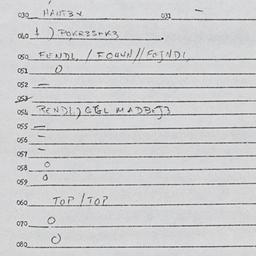 030 HAUTBV 031 —
040 1 ) POKR3S+K3
050 FENDL / FOUVN // FOJNDL
051 0
052 —
053
054 PENDL) GGL MADBEJJ
055 —
056 —
057 —
058 0
059 0
060 TOP / TOP
070 0
080 0